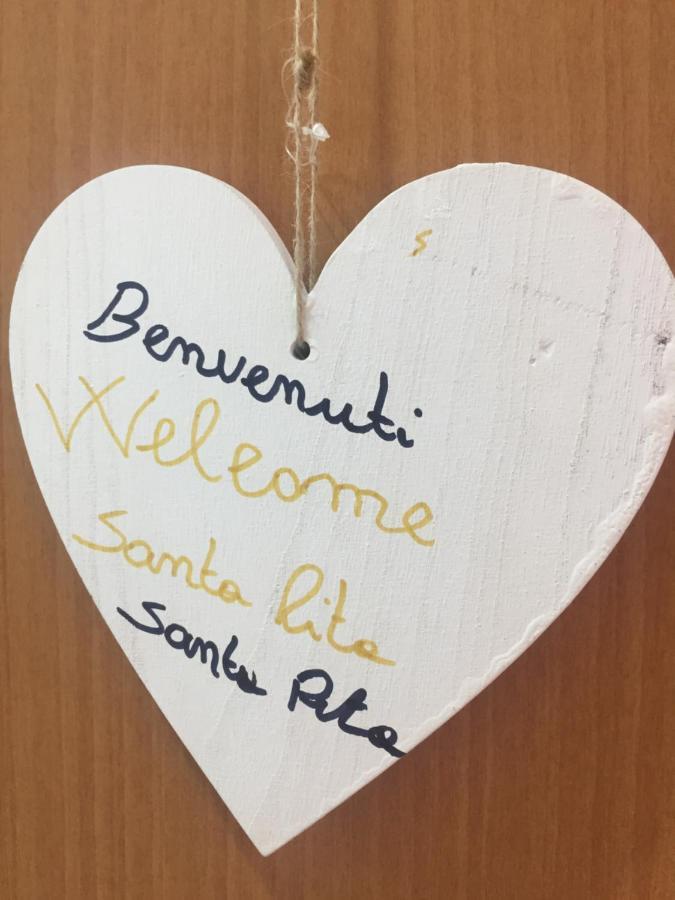 Benvenuti
Welcome
Santa Rita
Santa Rita